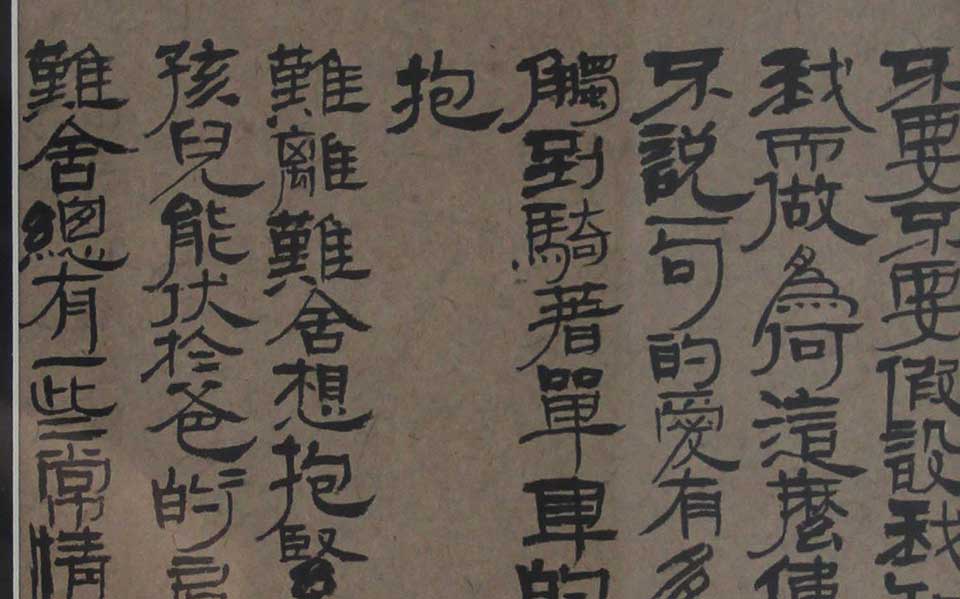 不要不要假設我知
我而做為何這麼偉
不說一句的愛有多
觸到騎著單車的
抱
難離難舍想抱緊
孩兒能伏於爸的
難舍總有一些常情